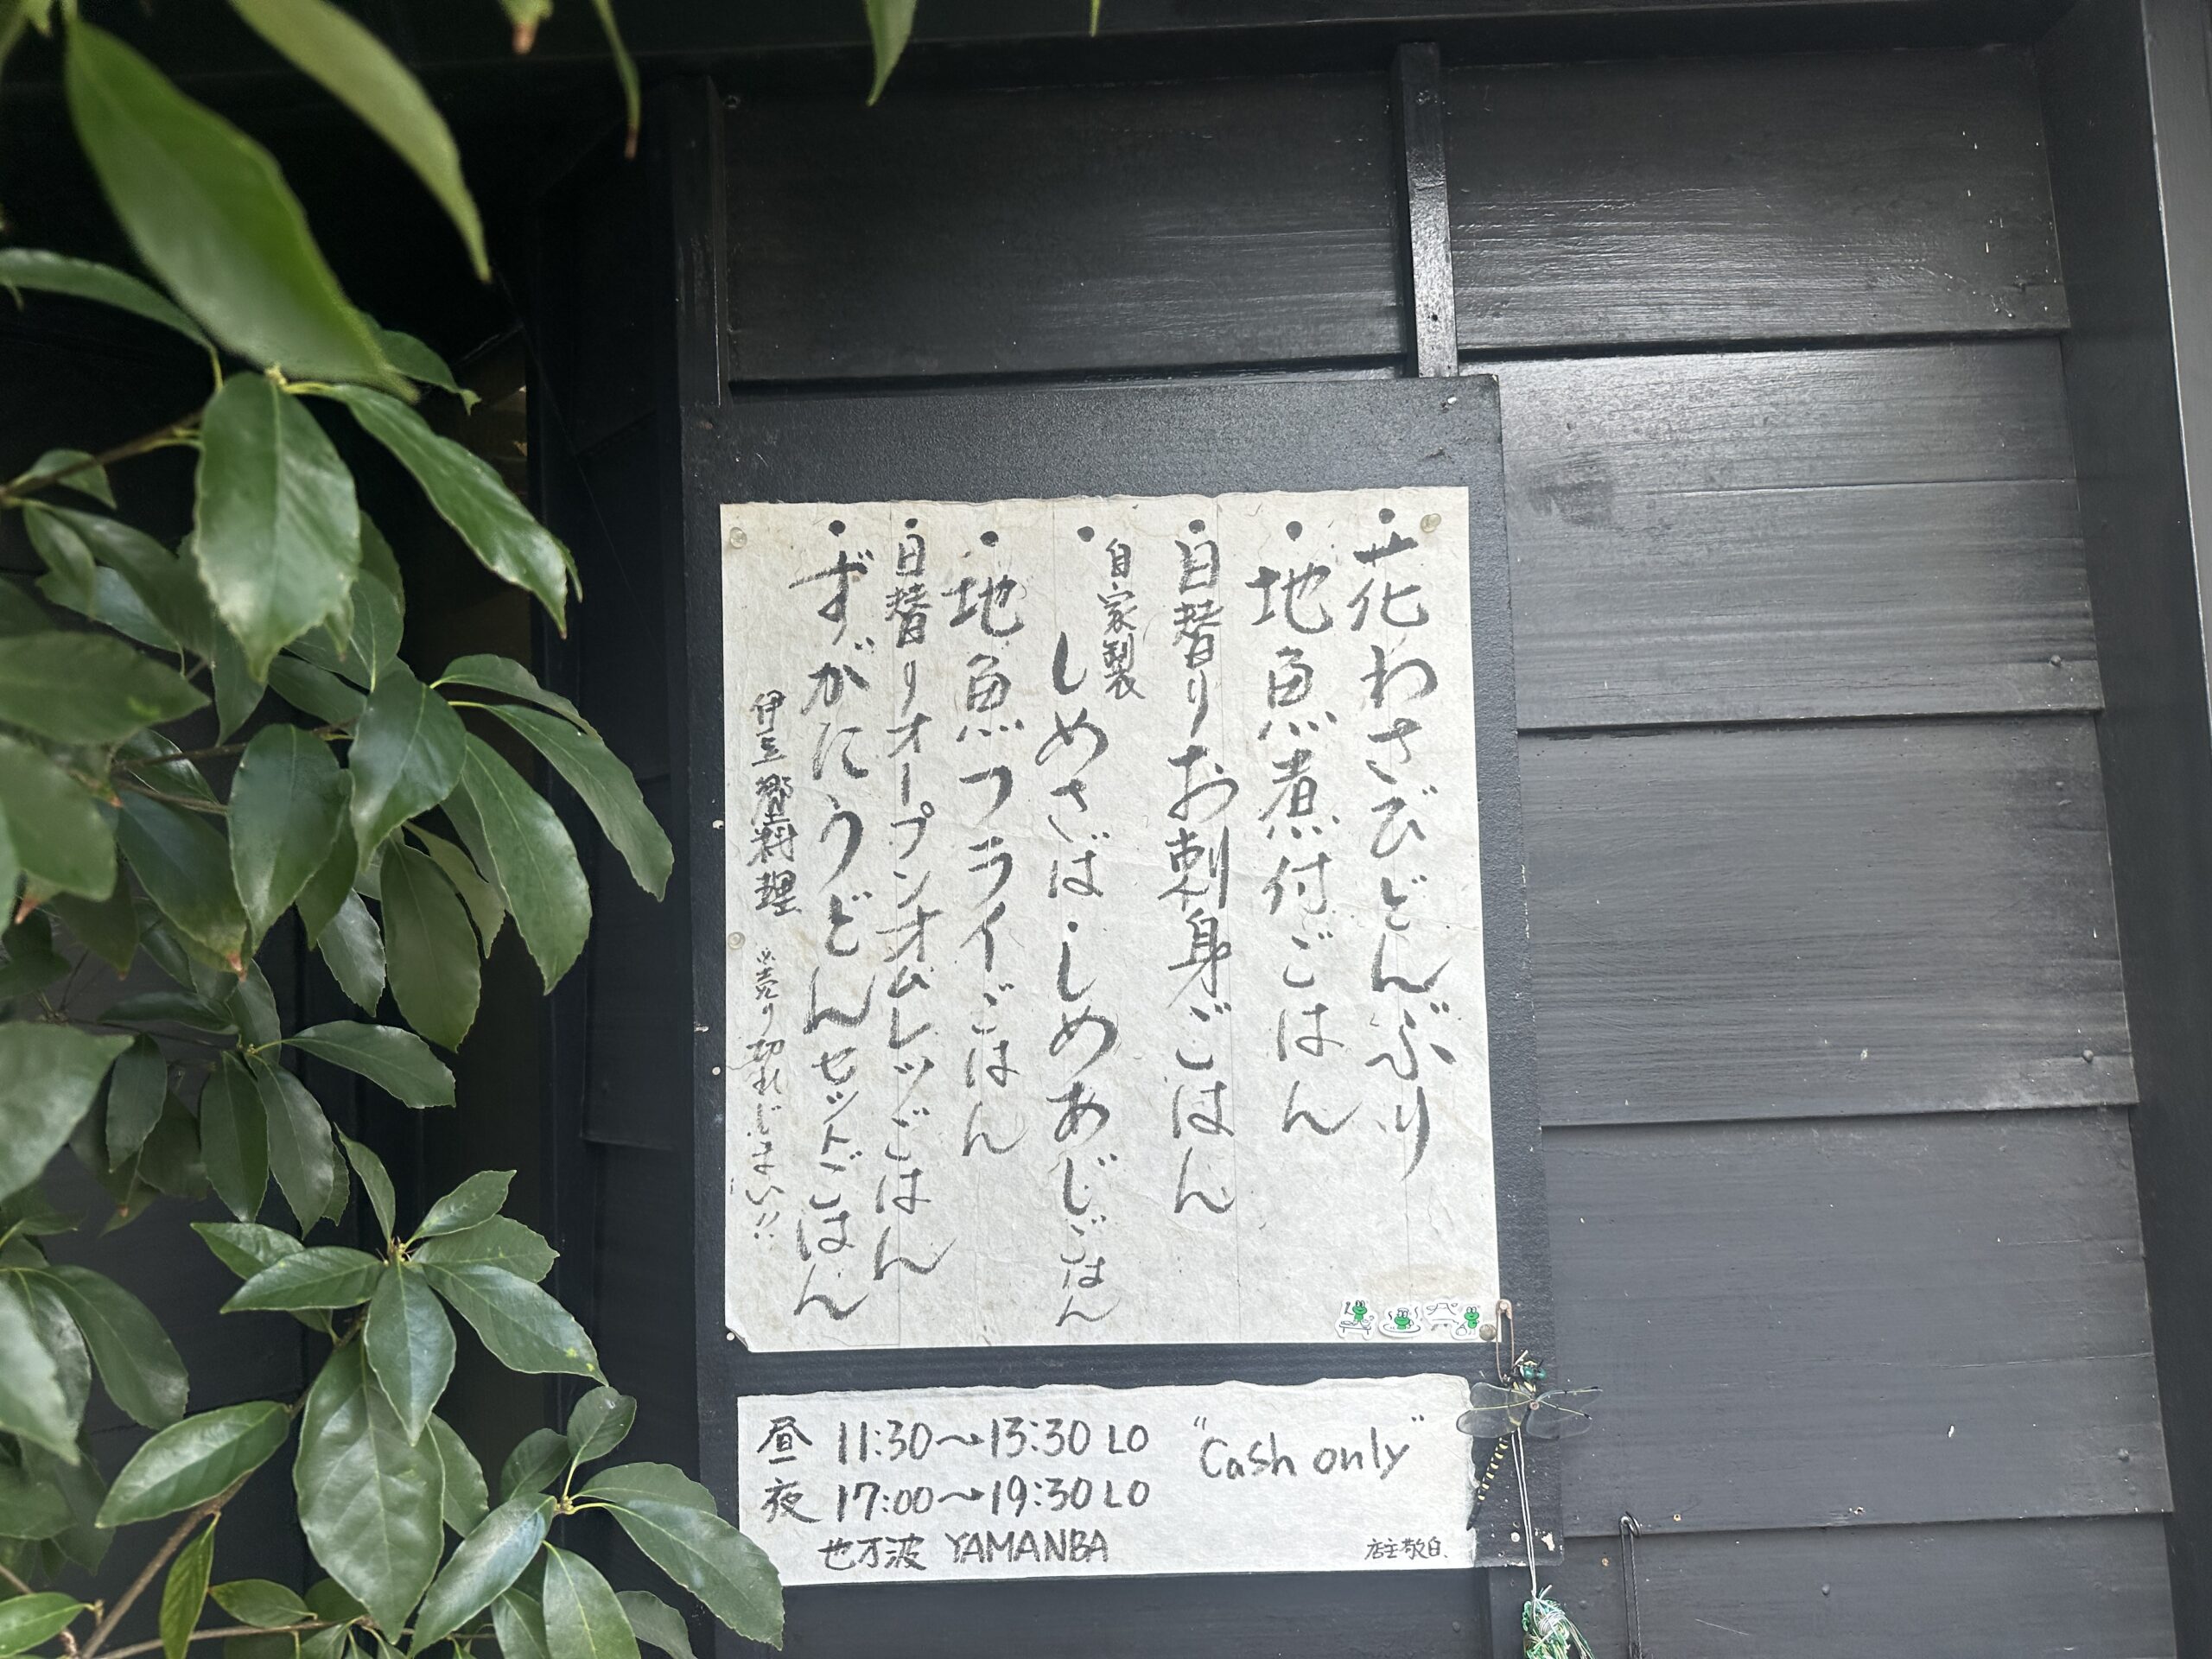 ・花わさびどんぶり
・地魚煮付ごはん
・日替りお刺身ごはん
・自家製しめさば・しめあじごはん
・地魚フライごはん
・日替りオープンオムレツごはん
・ずがにうどんセットごはん
伊豆郷土料理 ※売り切れじまい!!
昼 11:30〜13:30 LO
夜 17:00〜19:30 LO
"Cash only"
也万波 YAMANBA
店主敬白、